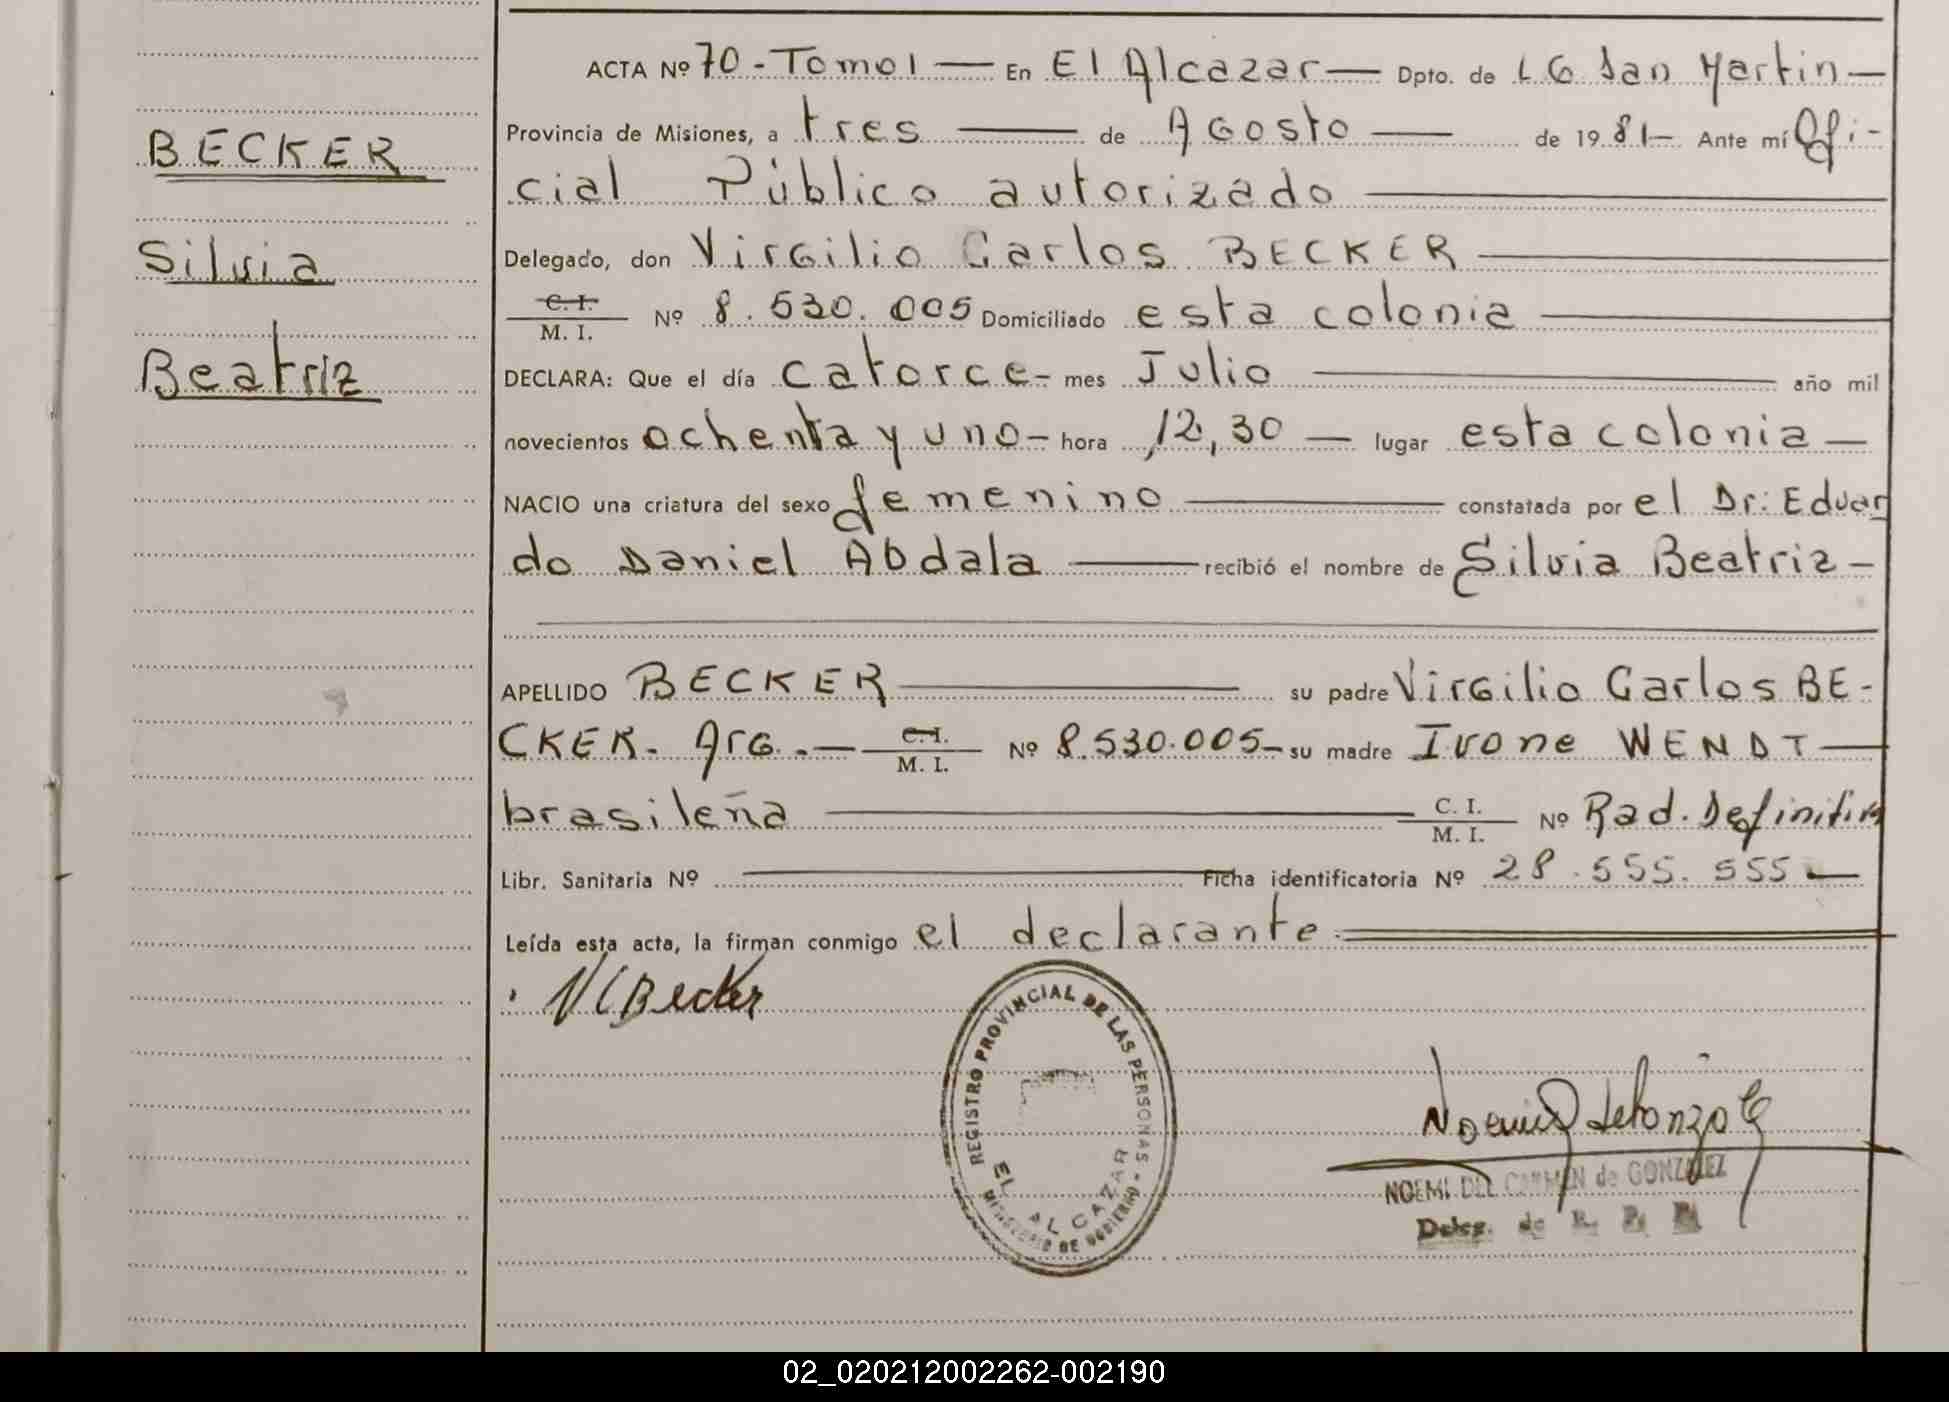 BECKER
Silvia
Beatriz
ACTA Nº 70 - Tomo I — En El Alcazar — Dpto. de L G San Martin —
Provincia de Misiones, a tres — de Agosto — de 1981 — Ante mí Ofi-
cial Público autorizado
Delegado, don Virgilio Carlos BECKER
C. I. / M. I. Nº 8.530.005 Domiciliado esta colonia
DECLARA: Que el día catorce - mes Julio — año mil
novecientos ochenta y uno - hora 12,30 — lugar esta colonia —
NACIO una criatura del sexo femenino — constatada por el Dr: Eduar
do Daniel Abdala — recibió el nombre de Silvia Beatriz —
APELLIDO BECKER — su padre Virgilio Carlos BE-
CKER. Arg. — C. I. / M. I. Nº 8.530.005 - su madre Ivone WENDT —
brasileña — C. I. / M. I. Nº Rad. Definitiva
Libr. Sanitaria Nº — Ficha identificatoria Nº 28.555.555 —
Leída esta acta, la firman conmigo el declarante
VCBecker
REGISTRO PROVINCIAL DE LAS PERSONAS
EL ALCAZAR
MINISTERIO DE GOBIERNO
NOEMI DEL CARMEN de GONZALEZ
Deleg. de R. P. P.
02_020212002262-002190